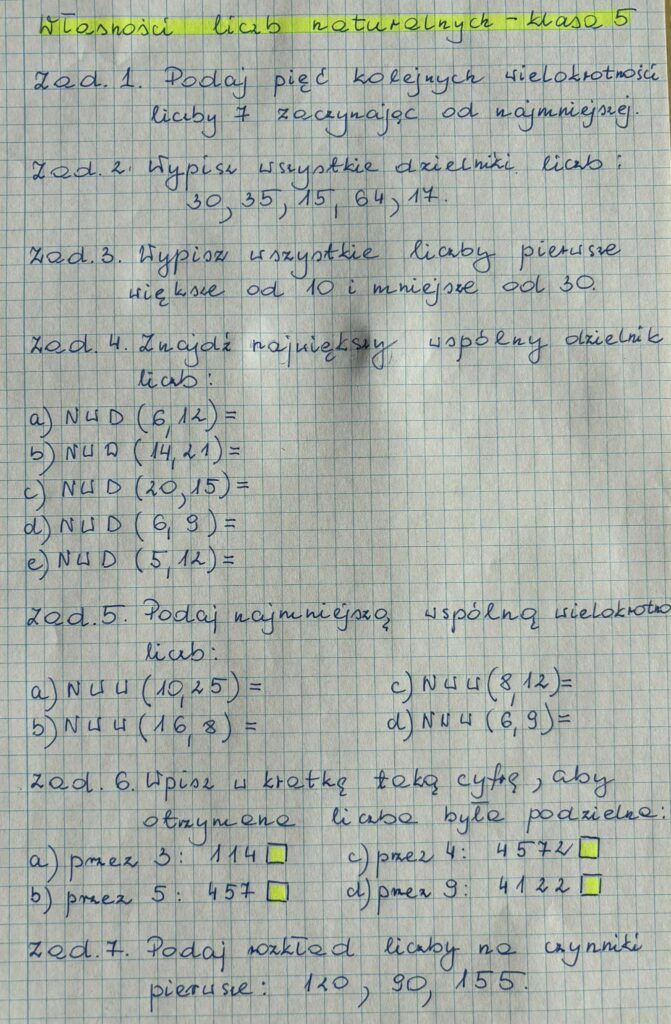 Własności liczb naturalnych - klasa 5
Zad. 1. Podaj pięć kolejnych wielokrotności
liczby 7 zaczynając od najmniejszej.
Zad. 2. Wypisz wszystkie dzielniki liczb:
30, 35, 15, 64, 17.
Zad. 3. Wypisz wszystkie liczby pierwsze
większe od 10 i mniejsze od 30.
Zad. 4. Znajdź największy wspólny dzielnik
liczb:
a) NWD (6,12)=
b) NWD (14,21)=
c) NWD (20,15)=
d) NWD (6,9)=
e) NWD (5,12)=
Zad. 5. Podaj najmniejszą wspólną wielokrotno
liczb:
a) NWW (10,25)= c) NWW (8,12)=
b) NWW (16,8)= d) NWW (6,9)=
Zad. 6. Wpisz w kratkę taką cyfrę, aby
otrzymana liczba była podzielna:
a) przez 3: 114 c) przez 4: 4572
b) przez 5: 457 d) przez 9: 4122
Zad. 7. Podaj rozkład liczby na czynniki
pierwsze: 120, 90, 155.